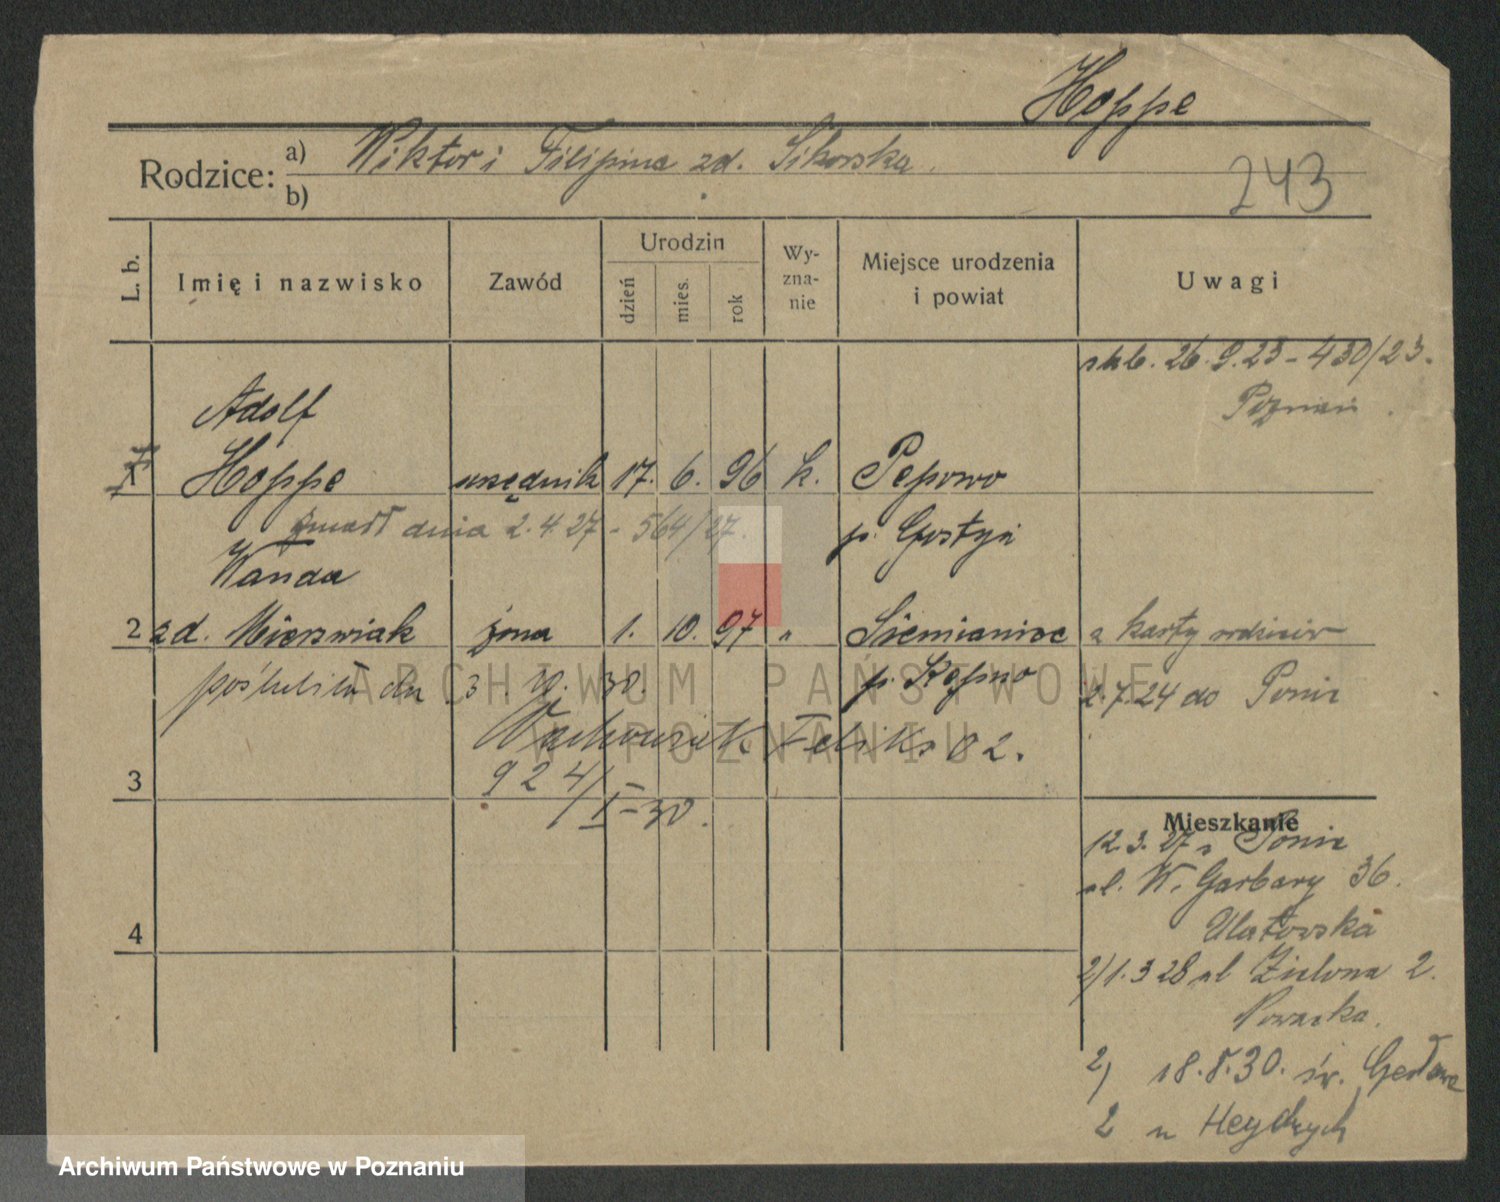 Hoppe
Rodzice: a) Wiktor i Filipina zd. Sikorska.
b)
243
L. b.
Imię i nazwisko
Zawód
Urodzin
dzień
mies.
rok
Wy-
zna-
nie
Miejsce urodzenia
i powiat
Uwagi
26.9.23 - 430/23.
Poznań
Adolf
1 Hoppe urzędnik 17. 6. 96 k. Pepowo
zmarł dnia 2.4.27 - 564/27.
p. Gostyń
Wanda
2 zd. Mierzwiak żona 1. 10. 97 " Siemianice
z karty rodziców
p. Kępno
2.7.24 do Ponia
poślubiła dn 3. 30.
Feliks 02.
3
924/I-30.
Mieszkanie
12.3.27 z Ponia
ul. W. Garbary 36.
Ulatowska
4
2) 1.3 28 ul Zielona 2.
2) 18.8.30. św.
2 u Heydrych
ARCHIWUM PAŃSTWOWE
W POZNANIU
Archiwum Państwowe w Poznaniu